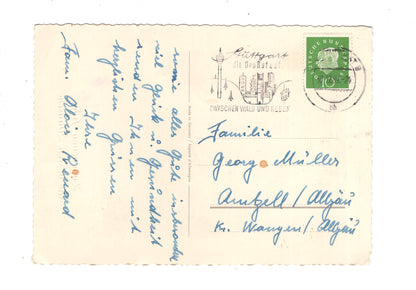 sowie alles Gute insbesondere
viel Glück u. Gesundheit
senden Ihnen mit
herzlichen Grüssen
Ihre
Fam. Alois Renard
Stuttgart
die Großstadt
ZWISCHEN WALD UND REBEN
DEUTSCHE BUNDESPOST
10
Familie
Georg Müller
Amtzell / Allgäu
Kr. Wangen / Allgäu